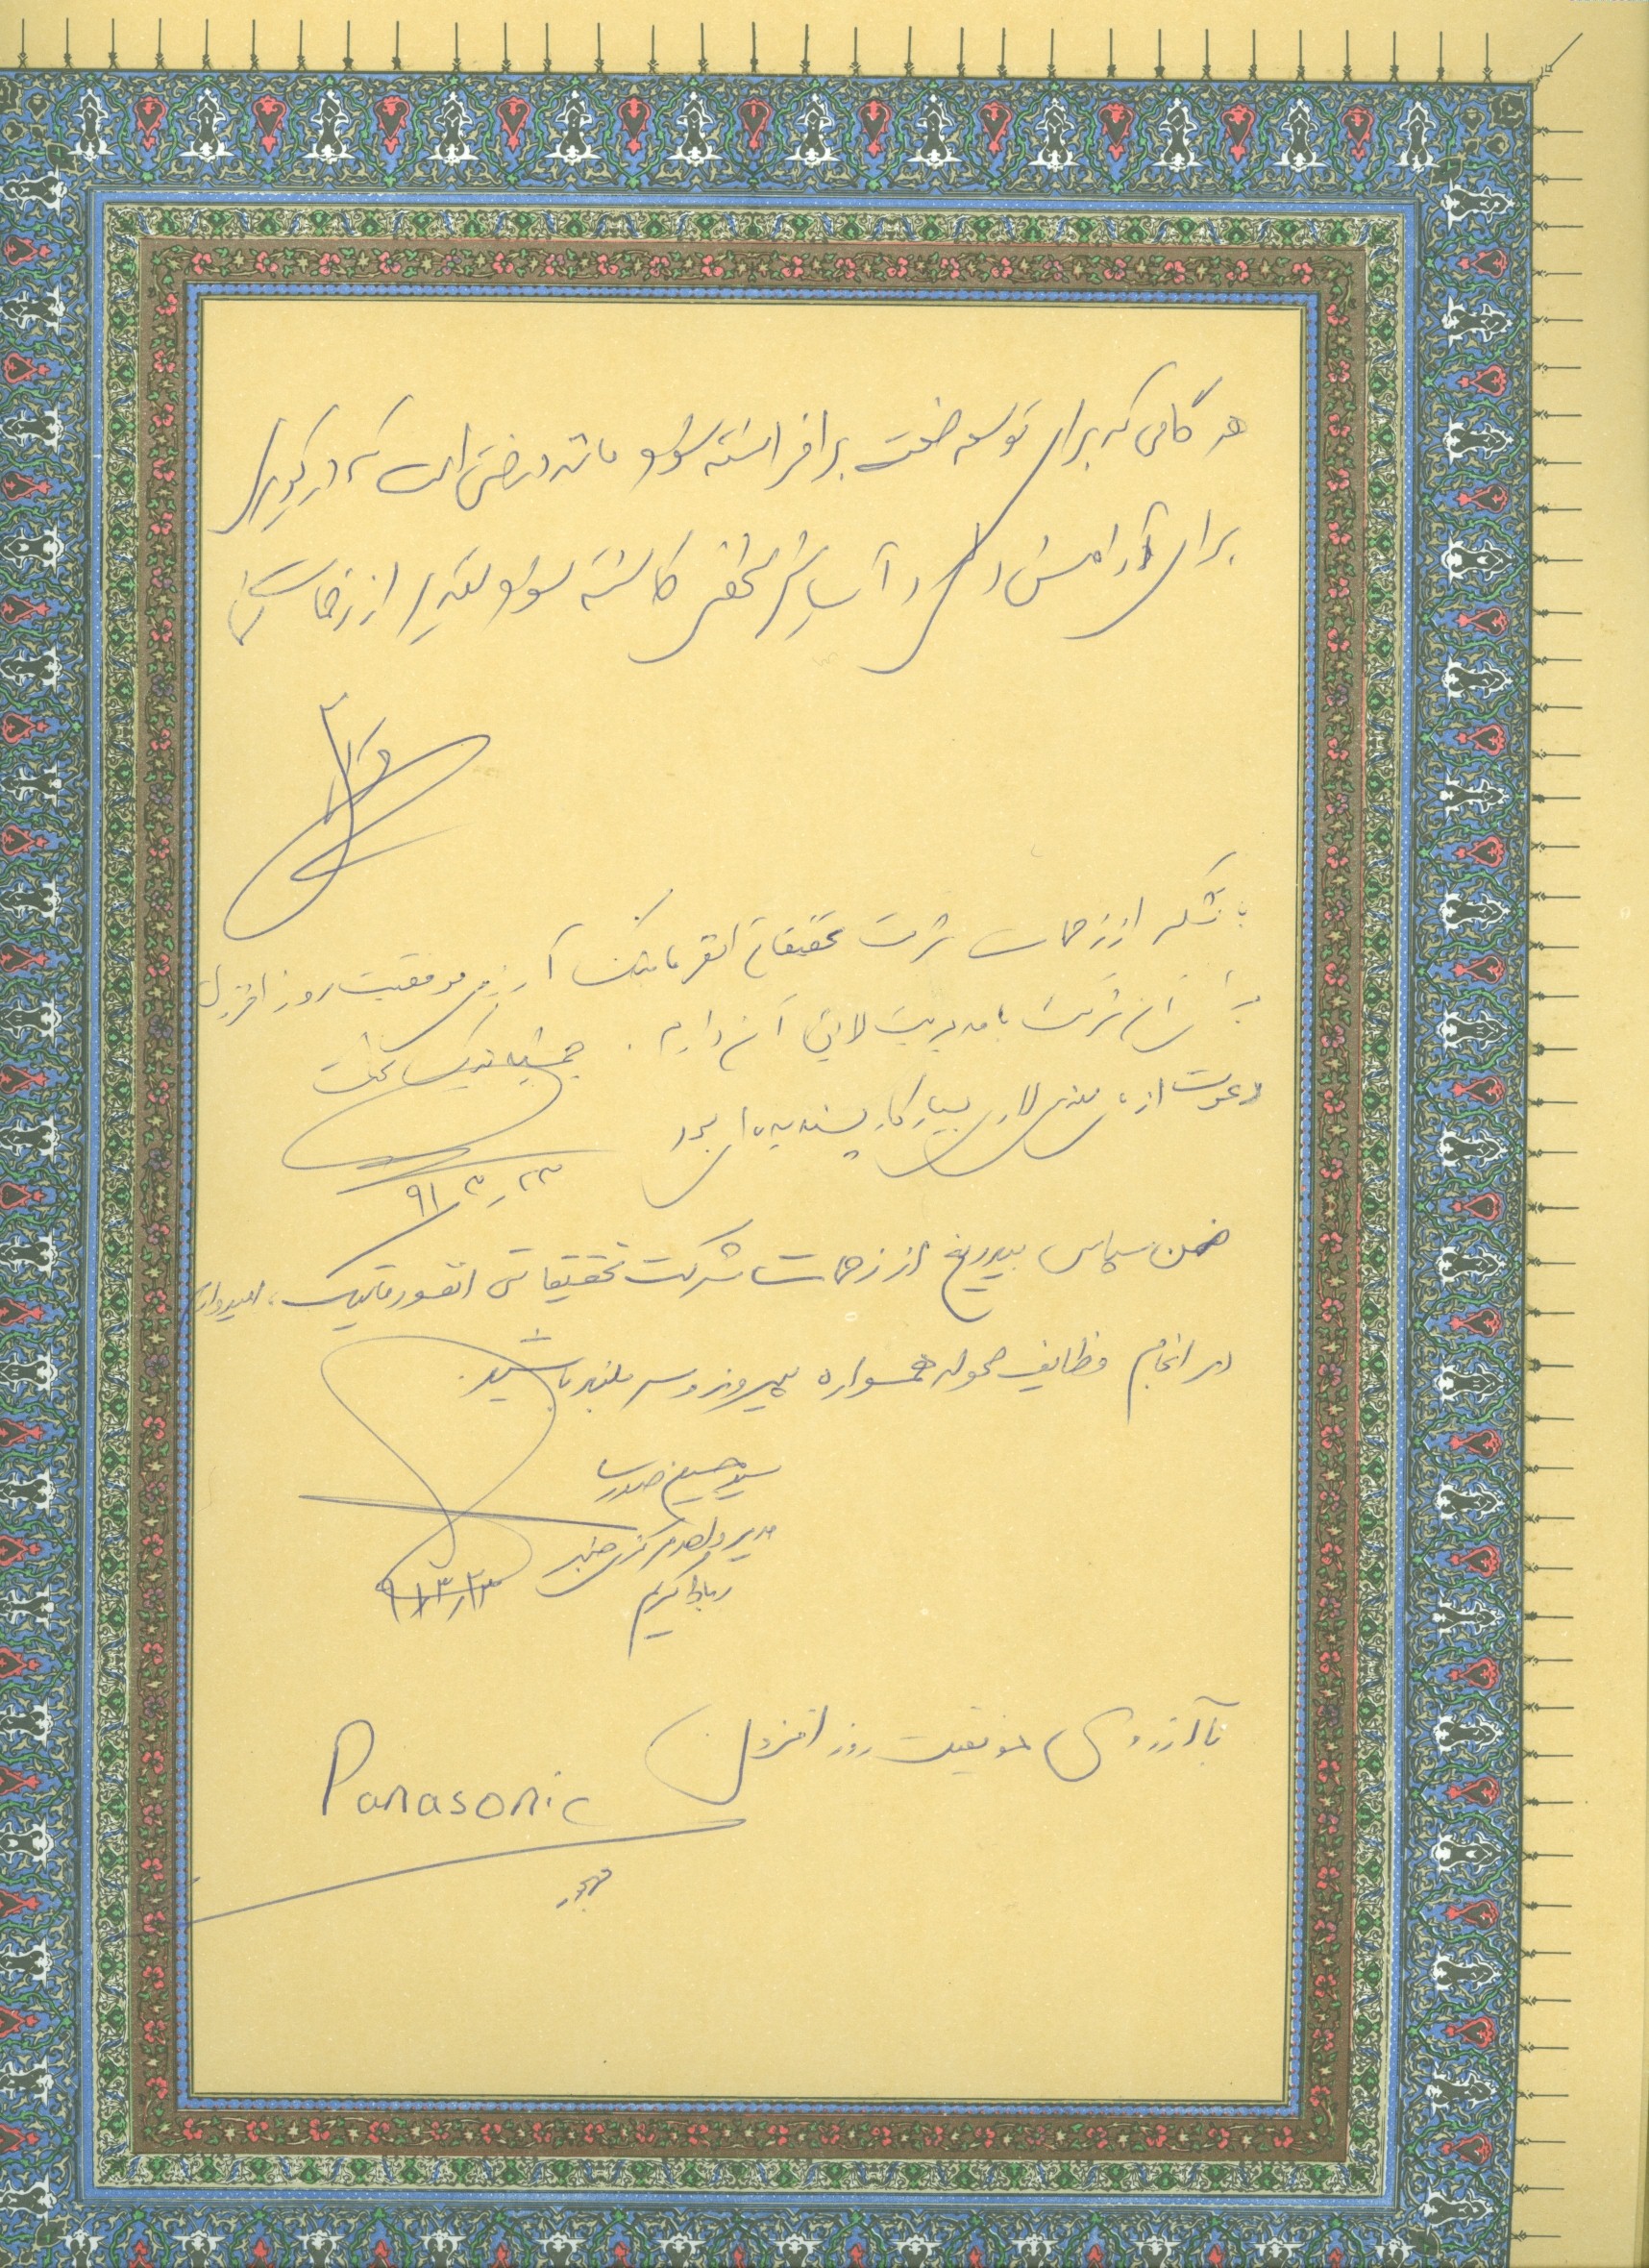 هر گامی که برای توسعه صنعت برافراشته شود مانند درختی است که در کویر
برای آرامش و آسایش کاشته شود تقدیر از زحمات شما
با تشکر از زحمات شرکت تحقیقاتی انفورماتیک آرزوی موفقیت روز افزون
برای آن شرکت با مدیریت لایق آن دارم. جمشید نیک بخت
دعوت از بسیار کار پسندیده ای بود
۹۱/۳/۲۳
ضمن سپاس بیدریغ از زحمات شرکت تحقیقاتی انفورماتیک، امیدوارم
در انجام وظایف محوله همواره پیروز و سربلند باشید.
سید حسین صدری
مدیر واحد مرکزی خبر
رباط کریم
۹۱/۳/۲۳
با آرزوی موفقیت روز افزون
Panasonic